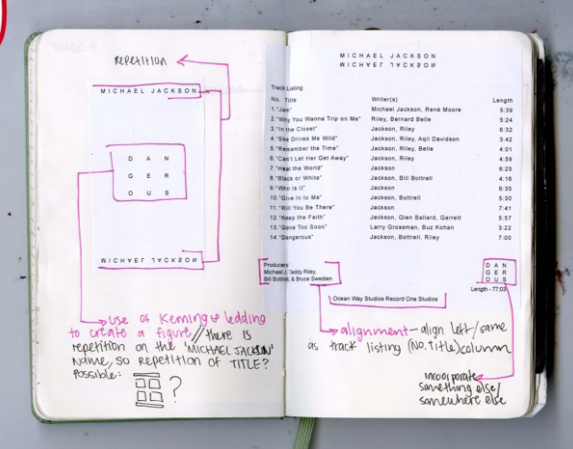 WEEK 4
repetition
MICHAEL JACKSON
D A N
G E R
O U S
MICHAEL JACKSON
use of Kerning & ledding
to create a figure // there is
repetition on the 'MICHAEL JACKSON'
Name, so repetition of TITLE?
Possible:
?
MICHAEL JACKSON
MICHAEL JACKSON
Track Listing
No. Title Writer(s) Length
1. "Jam" Michael Jackson, René Moore 5:39
2. "Why You Wanna Trip on Me" Riley, Bernard Belle 5:24
3. "In the Closet" Jackson, Riley 6:32
4. "She Drives Me Wild" Jackson, Riley, Aqil Davidson 3:42
5. "Remember the Time" Jackson, Riley, Belle 4:01
6. "Can't Let Her Get Away" Jackson, Riley 4:59
7. "Heal the World" Jackson 6:25
8. "Black or White" Jackson, Bill Bottrell 4:16
9. "Who Is It" Jackson 6:35
10. "Give In to Me" Jackson, Bottrell 5:30
11. "Will You Be There" Jackson 7:41
12. "Keep the Faith" Jackson, Glen Ballard, Garrett 5:57
13. "Gone Too Soon" Larry Grossman, Buz Kohan 3:22
14. "Dangerous" Jackson, Bottrell, Riley 7:00
Producers
Michael J, Teddy Riley,
Bill Bottrell, & Bruce Swedien
D A N
G E R
O U S
Length - 77:03
Ocean Way Studios Record One Studios
alignment - align left/same
as track listing (No. Title) column
incorporate
something else/
somewhere else